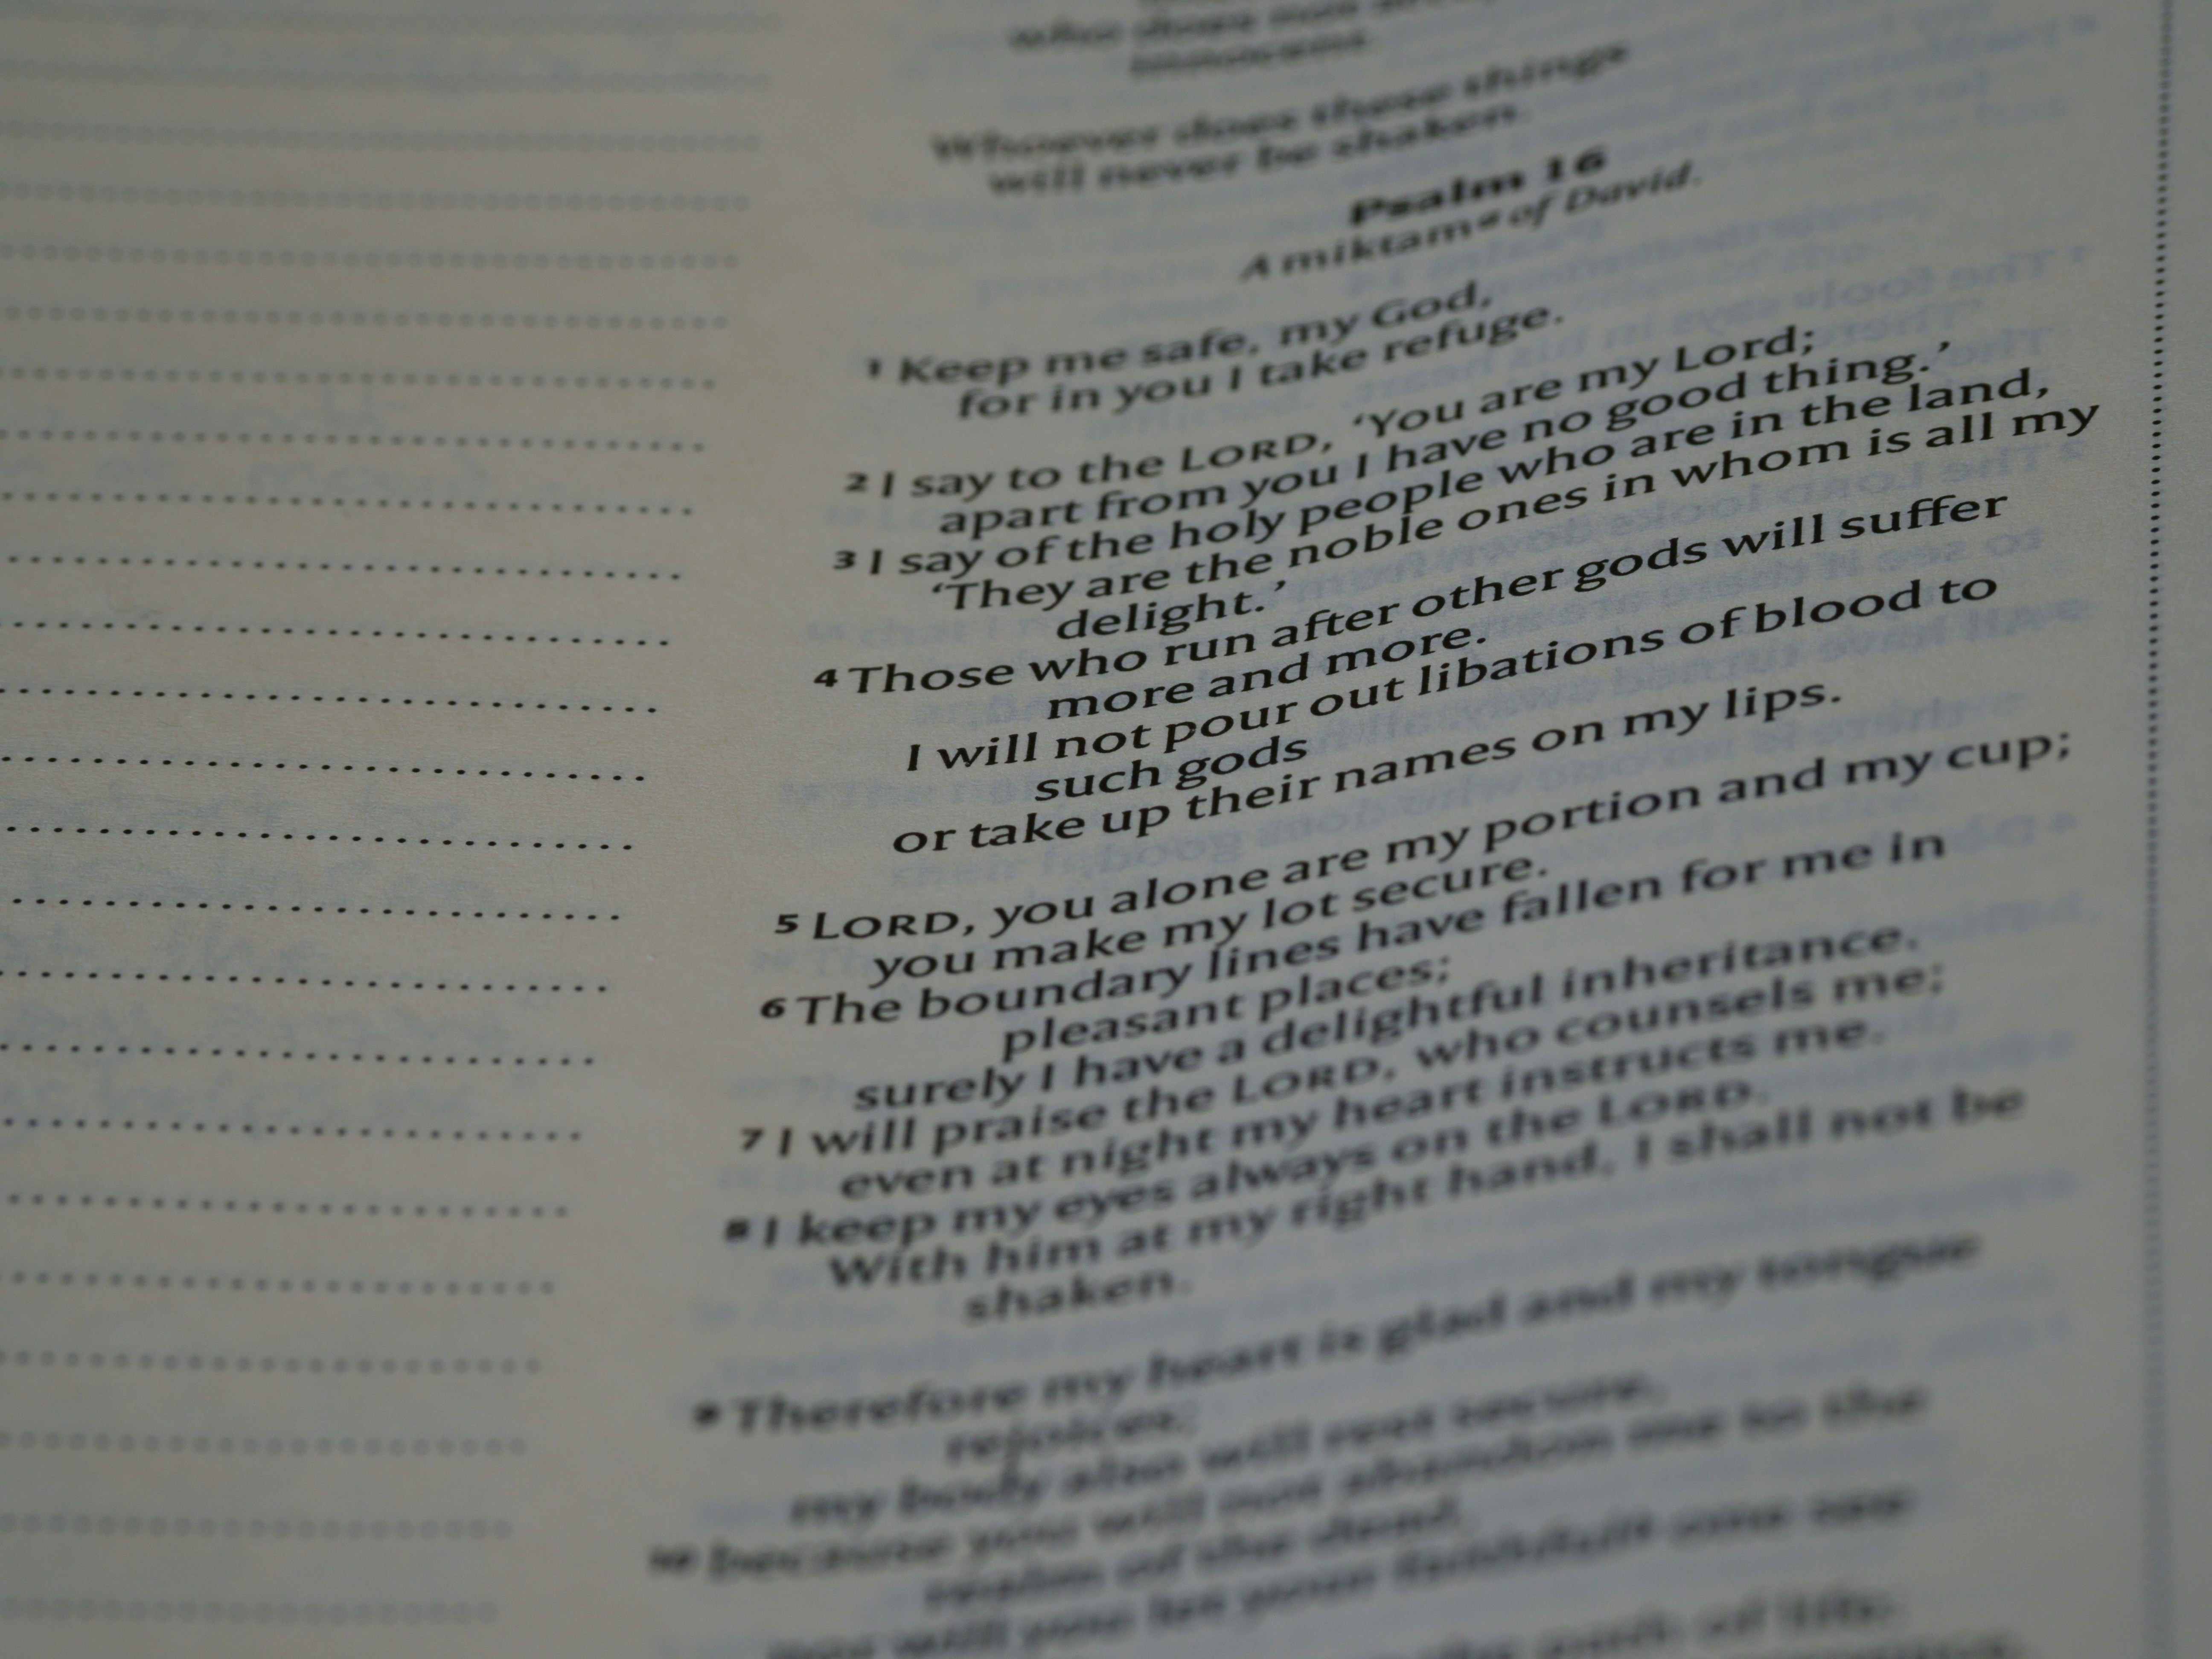 Whoever does these things
will never be shaken.
Psalm 16
A miktam of David.
1 Keep me safe, my God,
for in you I take refuge.
2 I say to the LORD, ‘You are my Lord;
apart from you I have no good thing.’
3 I say of the holy people who are in the land,
‘They are the noble ones in whom is all my
delight.’
4 Those who run after other gods will suffer
more and more.
I will not pour out libations of blood to
such gods
or take up their names on my lips.
5 LORD, you alone are my portion and my cup;
you make my lot secure.
6 The boundary lines have fallen for me in
pleasant places;
surely I have a delightful inheritance.
7 I will praise the LORD, who counsels me;
even at night my heart instructs me.
8 I keep my eyes always on the LORD.
With him at my right hand, I shall not be
shaken.
9 Therefore my heart is glad and my tongue
rejoices;
my body also will rest secure,
10 because you will not abandon me to the
realm of the dead,
will you let your faithful one see